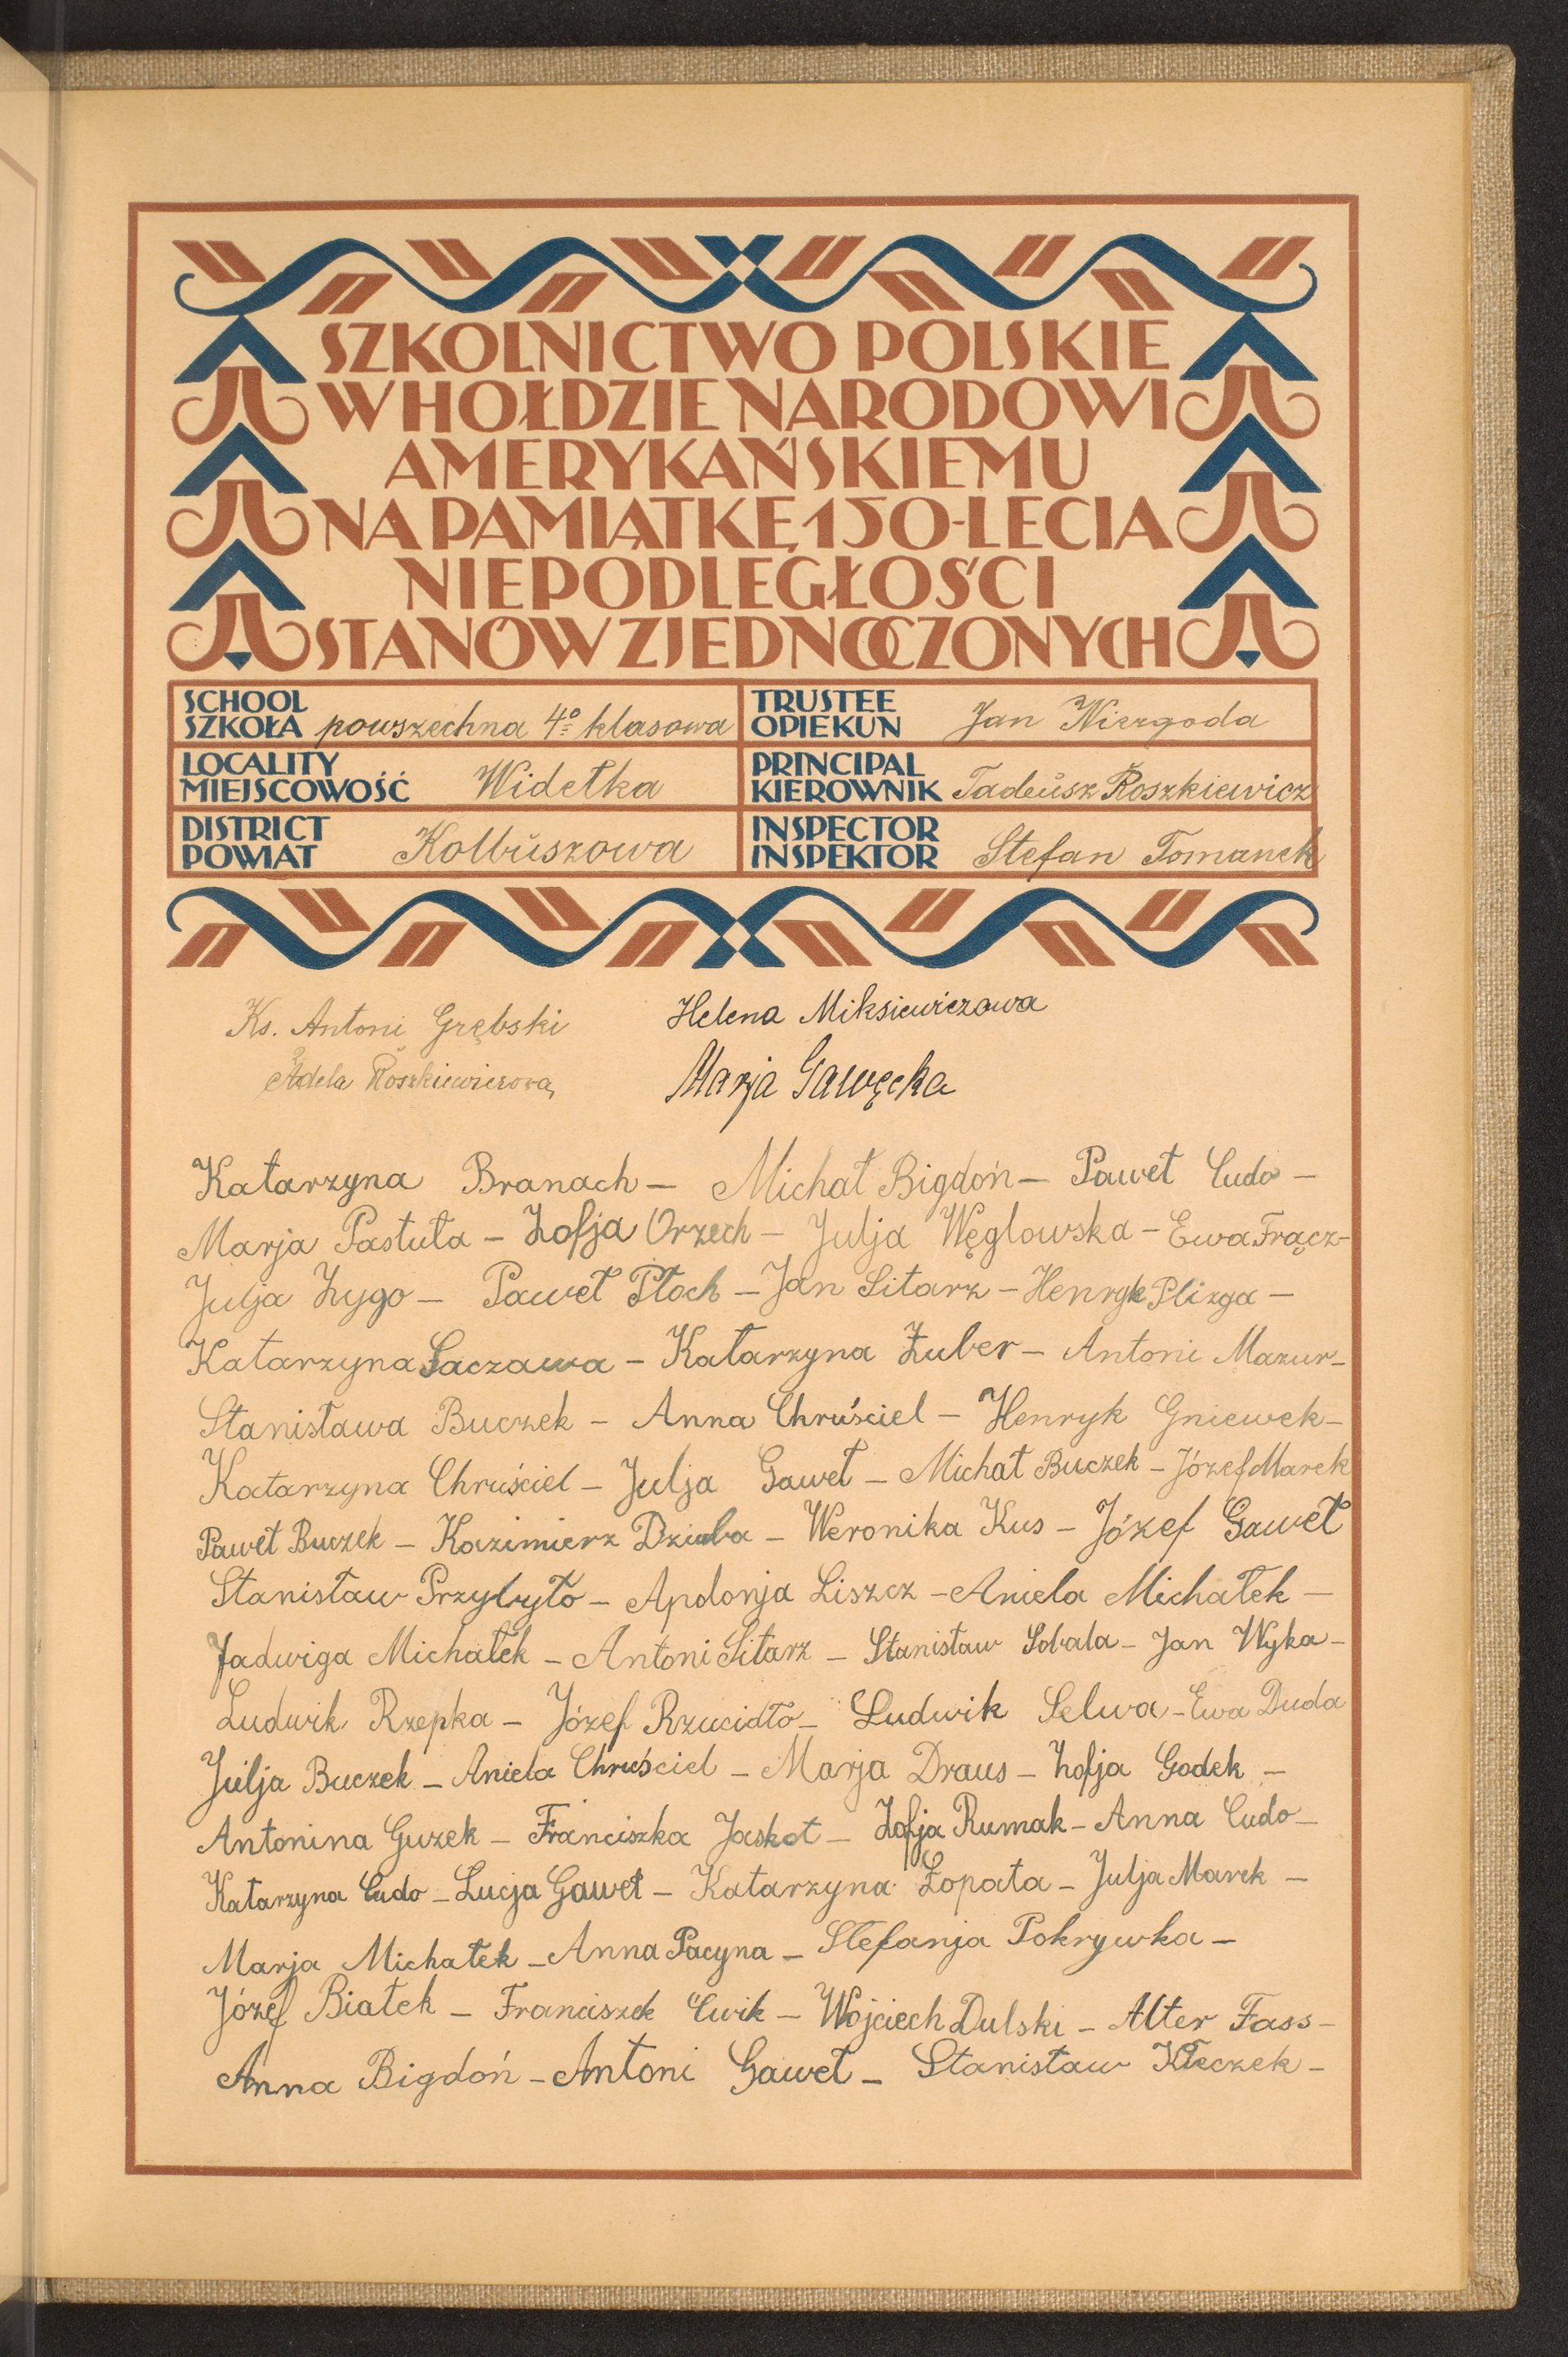 SZKOLNICTWO POLSKIE
W HOŁDZIE NARODOWI
AMERYKAŃSKIEMU
NA PAMIĄTKĘ 150-LECIA
NIEPODLEGŁOŚCI
STANÓW ZJEDNOCZONYCH
SCHOOL
SZKOŁA powszechna 4º klasowa
TRUSTEE
OPIEKUN Jan Niezgoda
LOCALITY
MIEJSCOWOŚĆ Widełka
PRINCIPAL
KIEROWNIK Tadeusz Roszkiewicz
DISTRICT
POWIAT Kolbuszowa
INSPECTOR
INSPEKTOR Stefan Tomanek
Ks. Antoni Grębski Helena Miksiewiczowa
Adela Roszkiewiczowa Marja Gawęcka
Katarzyna Branach – Michał Bigdoń – Paweł Cudo –
Marja Pastuła – Zofja Orzech – Julja Węglowska – Ewa Frącz –
Julja Zygo – Paweł Płoch – Jan Sitarz – Henryk Plizga –
Katarzyna Saczawa – Katarzyna Żuber – Antoni Mazur –
Stanisława Buczek – Anna Chruściel – Henryk Gniewek –
Katarzyna Chruściel – Julja Gaweł – Michał Buczek – Józef Marek
Paweł Buczek – Kazimierz Dziuba – Weronika Kus – Józef Gaweł
Stanisław Przybyło – Apolonja Liszcz – Aniela Michałek –
Jadwiga Michałek – Antoni Sitarz – Stanisław Sobala – Jan Wyka –
Ludwik Rzepka – Józef Rzucidło – Ludwik Selwa – Ewa Duda
Julja Buczek – Aniela Chruściel – Marja Draus – Zofja Godek –
Antonina Guzek – Franciszka Jaskot – Zofja Rumak – Anna Cudo –
Katarzyna Cudo – Łucja Gaweł – Katarzyna Łopata – Julja Marek –
Marja Michałek – Anna Pacyna – Stefanja Pokrywka –
Józef Białek – Franciszek Ćwik – Wojciech Dulski – Alter Fass –
Anna Bigdoń – Antoni Gaweł – Stanisław Kłeczek –